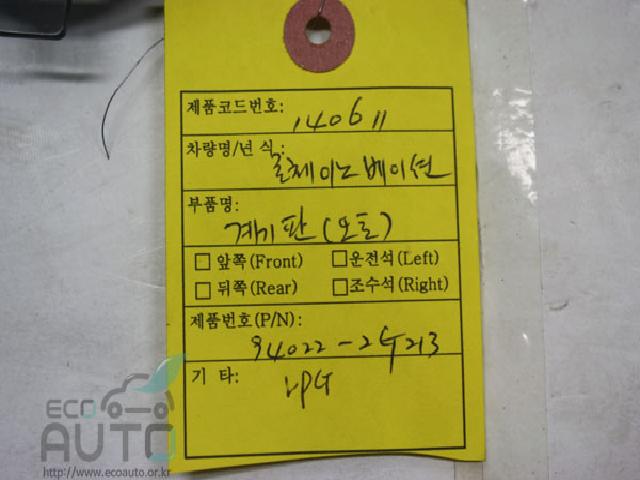 제품코드번호: 140611
차량명/년 식: 로체이노베이션
부품명:
계기판(오토)
□ 앞쪽(Front) □운전석(Left)
□ 뒤쪽(Rear) □조수석(Right)
제품번호(P/N):
94022-2G213
기 타: LPG
ECO
AUTO
http://www.ecoauto.or.kr